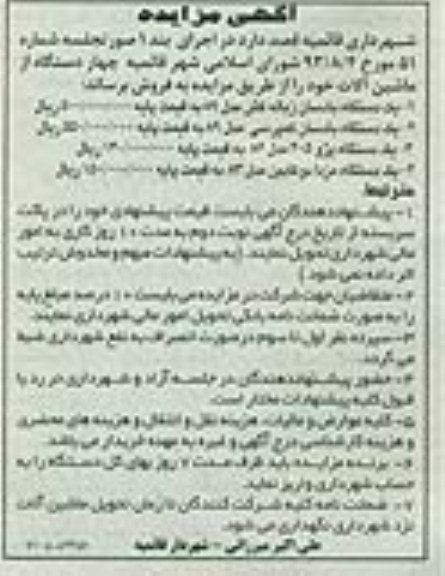 آگهی مزایده
شهرداری قائمیه قصد دارد در اجرای بند ۱ صورتجلسه شماره
۵۱ مورخ ۹۳/۸/۴ شورای اسلامی شهر قائمیه چهار دستگاه از
ماشین آلات خود را از طریق مزایده به فروش برساند:
۱- یک دستگاه نیسان زباله کش مدل به قیمت پایه ریال
۲- یک دستگاه نیسان کمپرسی مدل به قیمت پایه ریال
۳- یک دستگاه پژو ۴۰۵ مدل به قیمت پایه ریال
۴- یک دستگاه مزدا دو کابین مدل ۸۳ به قیمت پایه ریال
شرایط:
۱- پیشنهاددهندگان می بایست قیمت پیشنهادی خود را در پاکت
سربسته از تاریخ درج آگهی نوبت دوم به مدت ۱۰ روز کاری به امور
مالی شهرداری تحویل نمایند. (به پیشنهادات مبهم و مخدوش ترتیب
اثر داده نمی شود.)
۲- متقاضیان جهت شرکت در مزایده می بایست ۱۰ درصد مبلغ پایه
را به صورت ضمانت نامه بانکی تحویل امور مالی شهرداری نمایند.
۳- سپرده نفر اول تا سوم در صورت انصراف به نفع شهرداری ضبط
می گردد.
۴- حضور پیشنهاددهندگان در جلسه آزاد و شهرداری در رد یا
قبول کلیه پیشنهادات مختار است.
۵- کلیه عوارض و مالیات، هزینه نقل و انتقال و هزینه های محضری
و هزینه کارشناسی درج آگهی و غیره به عهده خریدار می باشد.
۶- برنده مزایده باید ظرف مدت ۷ روز بهای کل دستگاه را به
حساب شهرداری واریز نماید.
۷- ضمانت نامه کلیه شرکت کنندگان تا زمان تحویل ماشین آلات
نزد شهرداری نگهداری می شود.
علی اکبر میرزائی - شهردار قائمیه